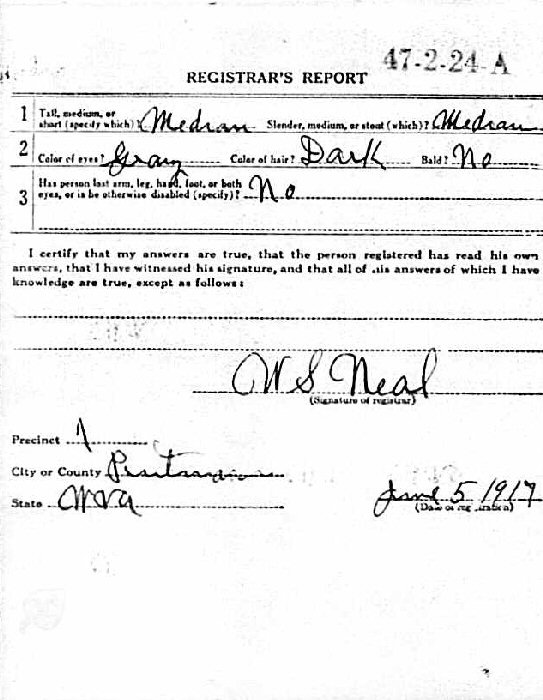 47-2-24-A
REGISTRAR'S REPORT
1 Tall, medium, or short (specify which)? Median Slender, medium, or stout (which)? Median
2 Color of eyes? Gray Color of hair? Dark Bald? No
3 Has person lost arm, leg, hand, foot, or both eyes, or is he otherwise disabled (specify)? No
I certify that my answers are true, that the person registered has read his own
answers, that I have witnessed his signature, and that all of his answers of which I have
knowledge are true, except as follows:
W S Neal
(Signature of registrar)
Precinct 1
City or County
State W Va
June 5 1917
(Date of registration)